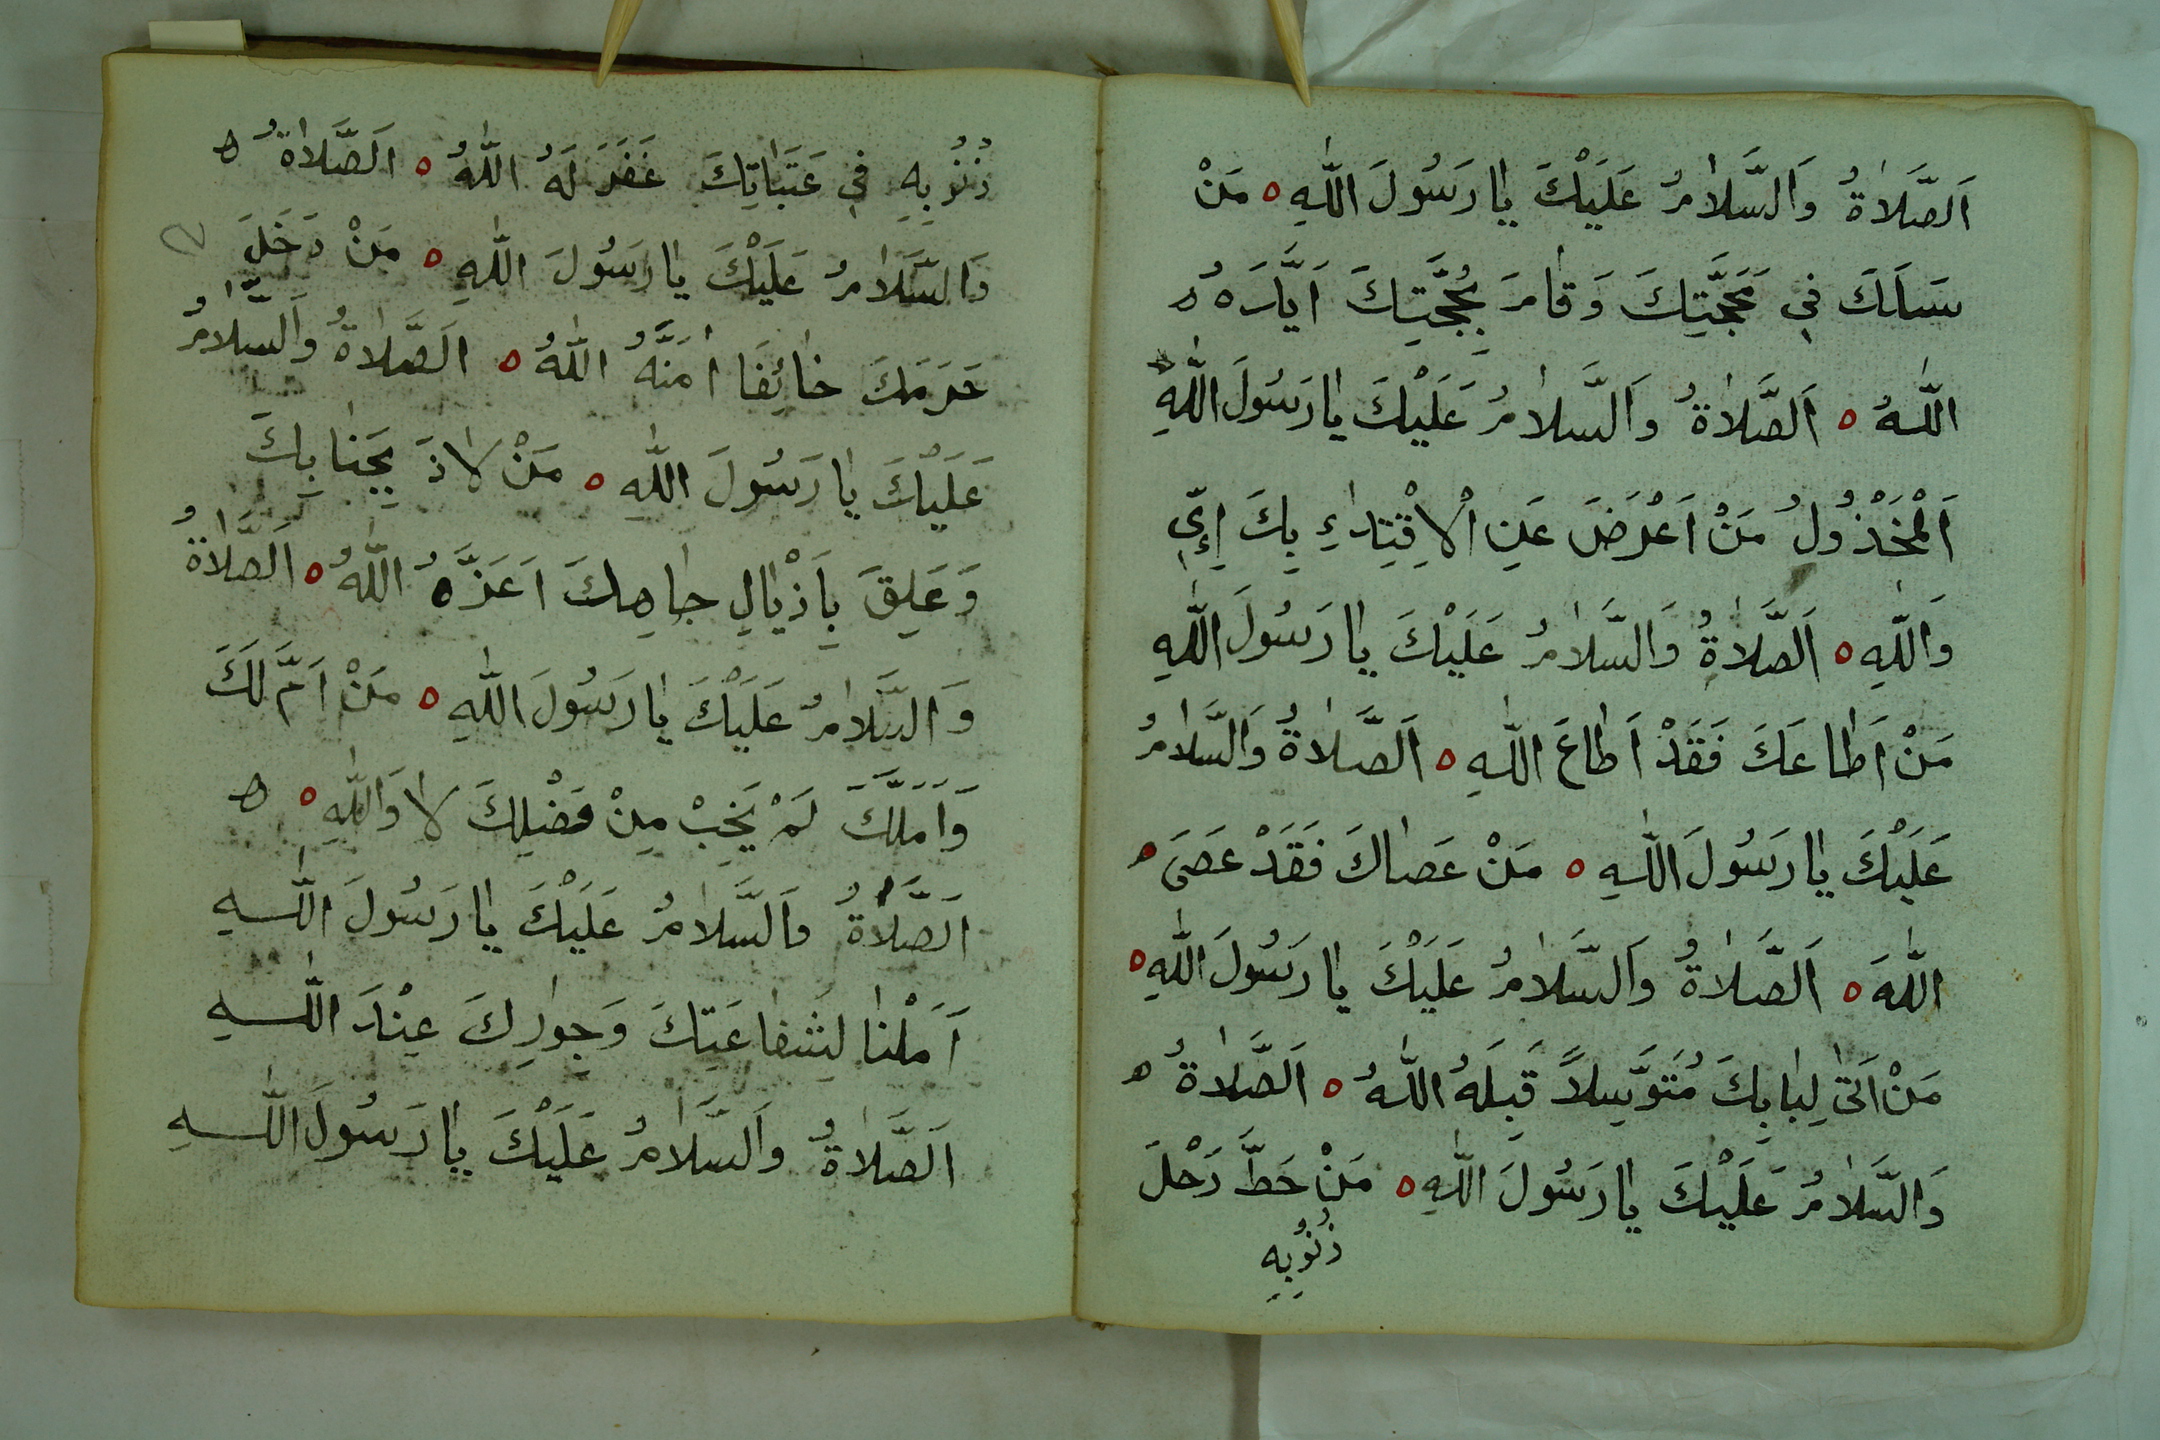 اَلصَّلَاةُ وَالسَّلَامُ عَلَيْكَ يَا رَسُولَ اللهِ ه مَنْ
سَلَكَ فِي مَحَجَّتِكَ وَقَامَ بِحُجَّتِكَ اَيَّدَهُ ه
اللهُ ه اَلصَّلَاةُ وَالسَّلَامُ عَلَيْكَ يَا رَسُولَ اللهِ
اَلْمَخْذُولُ مَنْ اَعْرَضَ عَنِ الْاِقْتِدَاءِ بِكَ اِيّ
وَاللهِ ه اَلصَّلَاةُ وَالسَّلَامُ عَلَيْكَ يَا رَسُولَ اللهِ
مَنْ اَطَاعَكَ فَقَدْ اَطَاعَ اللهِ ه اَلصَّلَاةُ وَالسَّلَامُ
عَلَيْكَ يَا رَسُولَ اللهِ ه مَنْ عَصَاكَ فَقَدْ عَصَى ه
اللهَ ه اَلصَّلَاةُ وَالسَّلَامُ عَلَيْكَ يَا رَسُولَ اللهِ ه
مَنْ اَتَى لِبَابِكَ مُتَوَسِّلاً قَبِلَهُ اللهُ ه اَلصَّلَاةُ ه
وَالسَّلَامُ عَلَيْكَ يَا رَسُولَ اللهِ ه مَنْ حَطَّ رَحْلَ
ذُنُوبِهِ
ذُنُوبِهِ فِي عَتَبَاتِكَ غَفَرَ لَهُ اللهُ ه اَلصَّلَاةُ ه
وَالسَّلَامُ عَلَيْكَ يَا رَسُولَ اللهِ ه مَنْ دَخَلَ
حَرَمَكَ خَائِفًا اٰمَنَهُ اللهُ ه اَلصَّلَاةُ وَالسَّلَامُ
عَلَيْكَ يَا رَسُولَ اللهِ ه مَنْ لَاذَ بِجَنَابِكَ
وَعَلِقَ بِاَذْيَالِ جَاهِكَ اَعَزَّهُ اللهُ ه اَلصَّلَاةُ
وَالسَّلَامُ عَلَيْكَ يَا رَسُولَ اللهِ ه مَنْ اَمَّ لَكَ
وَاَمَّلَكَ لَمْ يَخِبْ مِنْ فَضْلِكَ لَا وَاللهِ ه ه
اَلصَّلَاةُ وَالسَّلَامُ عَلَيْكَ يَا رَسُولَ اللهِ
اَمَلْنَا لِشَفَاعَتِكَ وَجِوَارِكَ عِنْدَ اللهِ
اَلصَّلَاةُ وَالسَّلَامُ عَلَيْكَ يَا رَسُولَ اللهِ